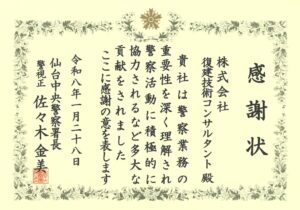 感謝状
株式会社
復建技術コンサルタント殿
貴社は警察業務の
重要性を深く理解され
警察活動に積極的に
協力されるなど多大な
貢献をされました
ここに感謝の意を表します
令和八年一月二十八日
仙台中央警察署長
警視正 佐々木金美